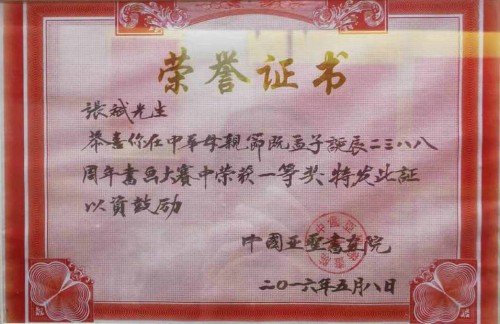 荣誉证书
張斌先生
恭喜你在中华母親節既孟子誕辰二三八八
周年書画大賽中荣获一等奖,特发此証
以资鼓励
中國亚聖書画院
二〇一六年五月八日